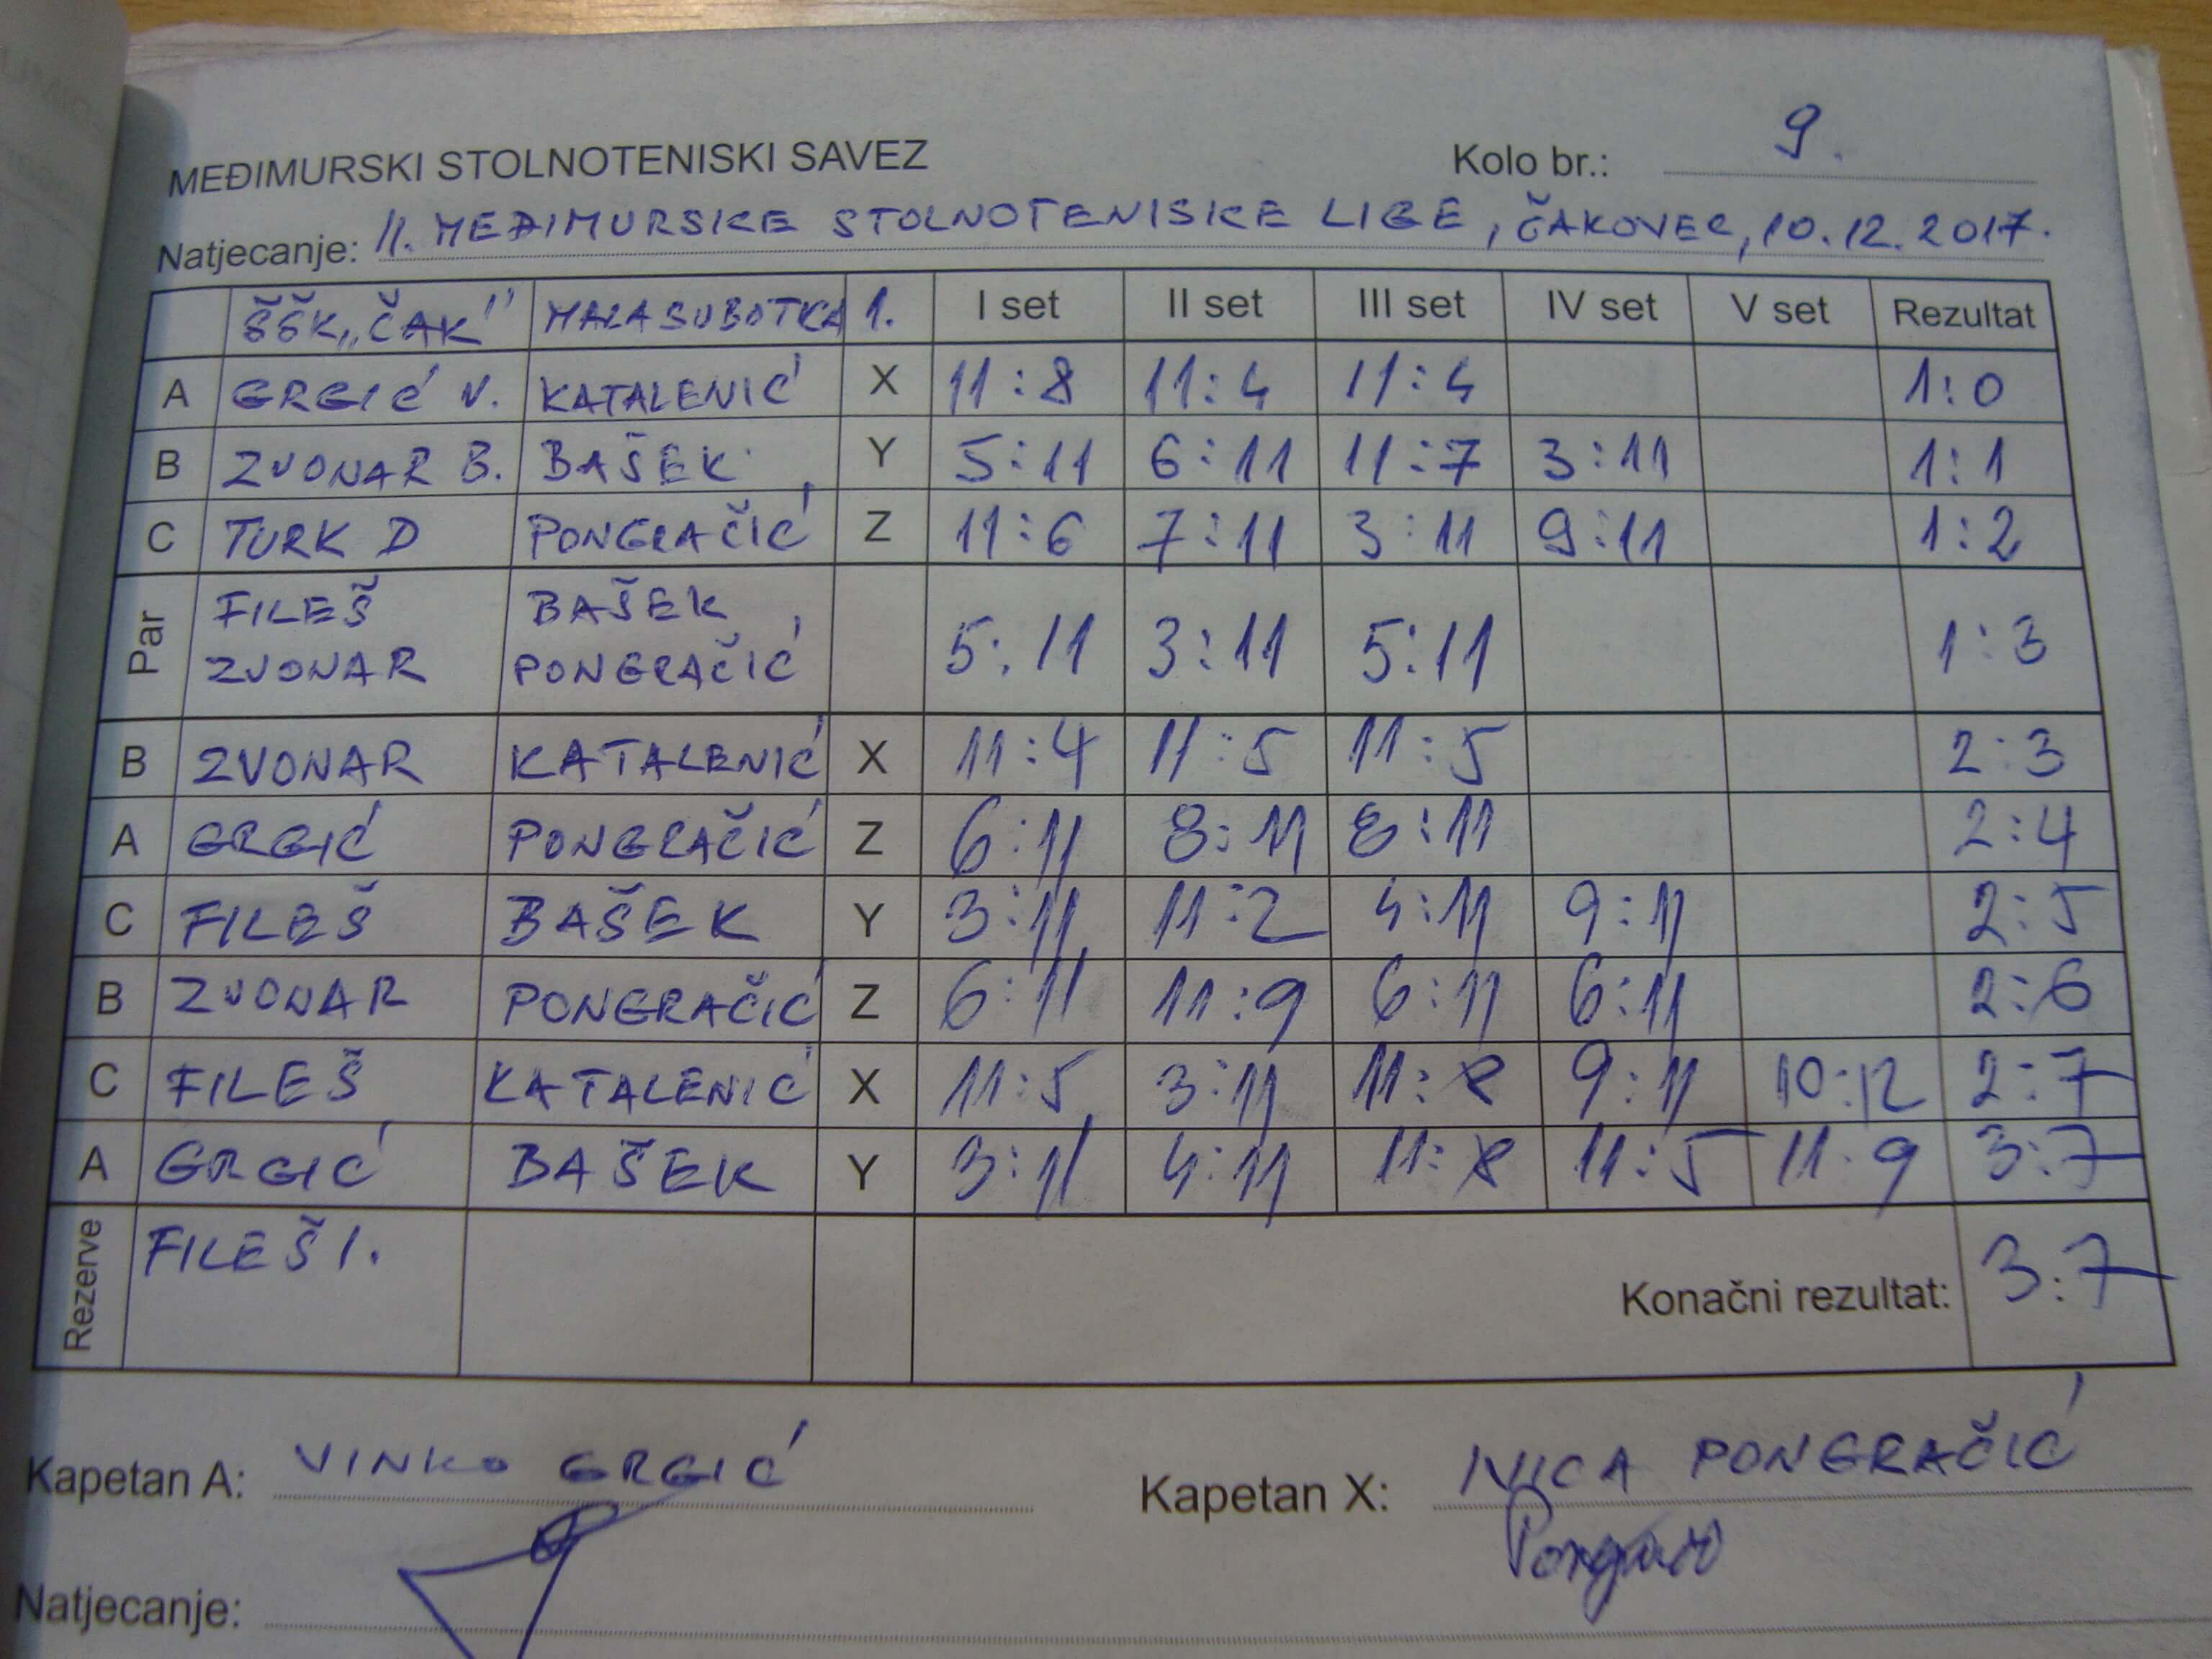 MEĐIMURSKI STOLNOTENISKI SAVEZ Kolo br.: 9.
Natjecanje: II. MEĐIMURSKE STOLNOTENISKE LIGE, ČAKOVEC, 10.12.2017.
ŠŠK „ČAK" MALA SUBOTKA 1. I set II set III set IV set V set Rezultat
A GRGIĆ V. KATALENIĆ X 11:8 11:4 11:4 1:0
B ZVONAR B. BAŠEK Y 5:11 6:11 11:7 3:11 1:1
C TURK D PONGRAČIĆ Z 11:6 7:11 3:11 9:11 1:2
Par FILEŠ ZVONAR BAŠEK PONGRAČIĆ 5:11 3:11 5:11 1:3
B ZVONAR KATALENIĆ X 11:4 11:5 11:5 2:3
A GRGIĆ PONGRAČIĆ Z 6:11 8:11 8:11 2:4
C FILEŠ BAŠEK Y 3:11 11:2 4:11 9:11 2:5
B ZVONAR PONGRAČIĆ Z 6:11 11:9 6:11 6:11 2:6
C FILEŠ KATALENIĆ X 11:5 3:11 11:8 9:11 10:12 2:7
A GRGIĆ BAŠEK Y 3:11 4:11 11:8 11:5 11:9 3:7
Rezerve FILEŠ I. Konačni rezultat: 3:7
Kapetan A: VINKO GRGIĆ Kapetan X: IVICA PONGRAČIĆ
Natjecanje: